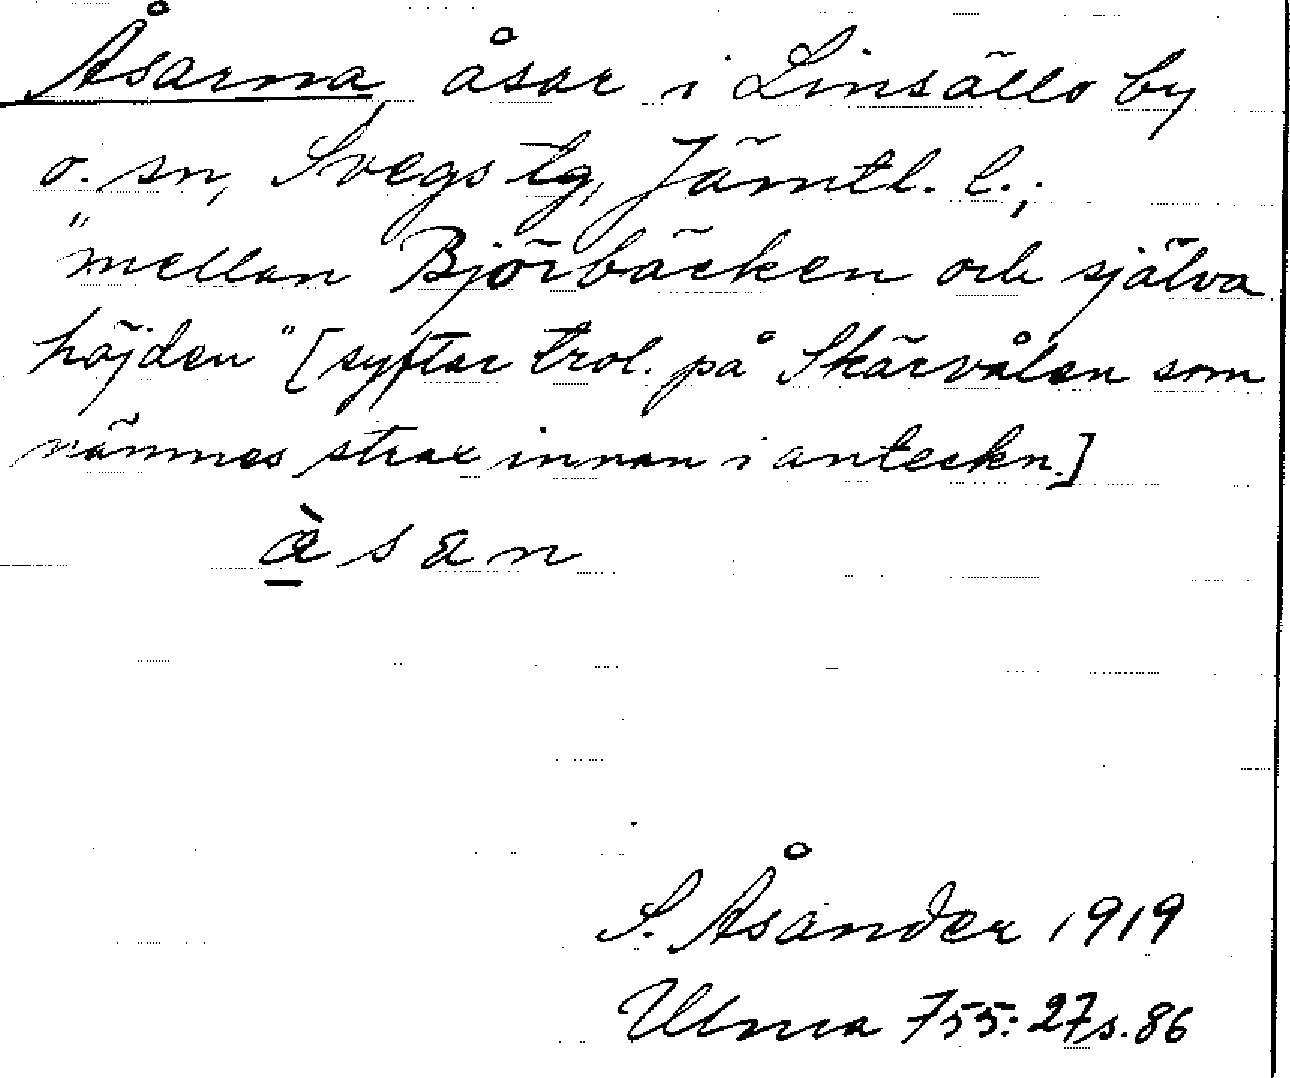 Åsarna, åsar i Linsälls by
o. sn, Svegs tg, Jämtl. l.;
"mellan Björbäcken och själva
höjden" [syftar trol. på Skärvålen som
nämnes strax innan i anteckn.]
æ̀san
S. Åsander 1919
Ulma 755:27 s. 86